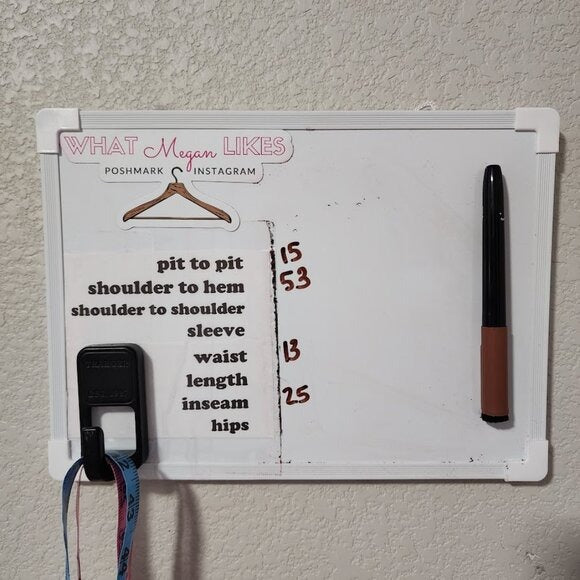 WHAT Megan LIKES
POSHMARK INSTAGRAM
pit to pit 15
shoulder to hem 53
shoulder to shoulder
sleeve
waist 13
length
inseam 25
hips